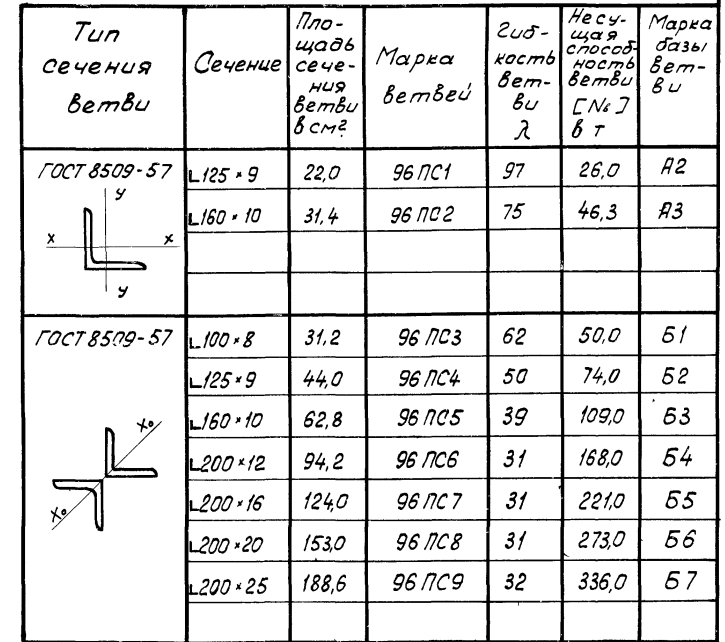 Тип
сечения
ветви
Сечение
Пло-
щадь
сече-
ния
ветви
в см²
Марка
ветвей
Гиб-
кость
вет-
ви
λ
Несу-
щая
способ-
ность
ветви
[Nв]
в т
Марка
базы
вет-
ви
ГОСТ 8509-57
y
x x
y
∟125×9 22,0 96 ПС1 97 26,0 А2
∟160×10 31,4 96 ПС2 75 46,3 А3
ГОСТ 8509-57
x₀
x₀
∟100×8 31,2 96 ПС3 62 50,0 Б1
∟125×9 44,0 96 ПС4 50 74,0 Б2
∟160×10 62,8 96 ПС5 39 109,0 Б3
∟200×12 94,2 96 ПС6 31 168,0 Б4
∟200×16 124,0 96 ПС7 31 221,0 Б5
∟200×20 153,0 96 ПС8 31 273,0 Б6
∟200×25 188,6 96 ПС9 32 336,0 Б7